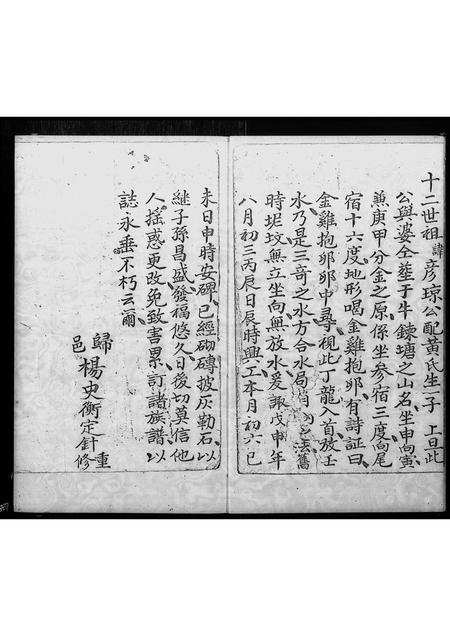 十二世祖諱彦琼公配黃氏生一子 上旦此
公與婆仝葬于牛鍊塘之山名坐申向寅
兼庚甲分金之原係坐參宿三度向尾
宿十六度地形喝金雞抱卵有詩証曰
金雞抱卵卵中尋視此丁龍入首放壬
水乃是三奇之水方合水局 之法舊
時坭坟無立坐向無放水爰諏戊申年
八月初三丙辰日辰時興工本月初六己
未日申時安碑已經砌磚披灰勒石以
継子孫昌盛發福悠久日後切莫信他
人揺惑更改免致害累訂諸族譜以
誌永垂不朽云爾
歸邑 楊史衡定針重修